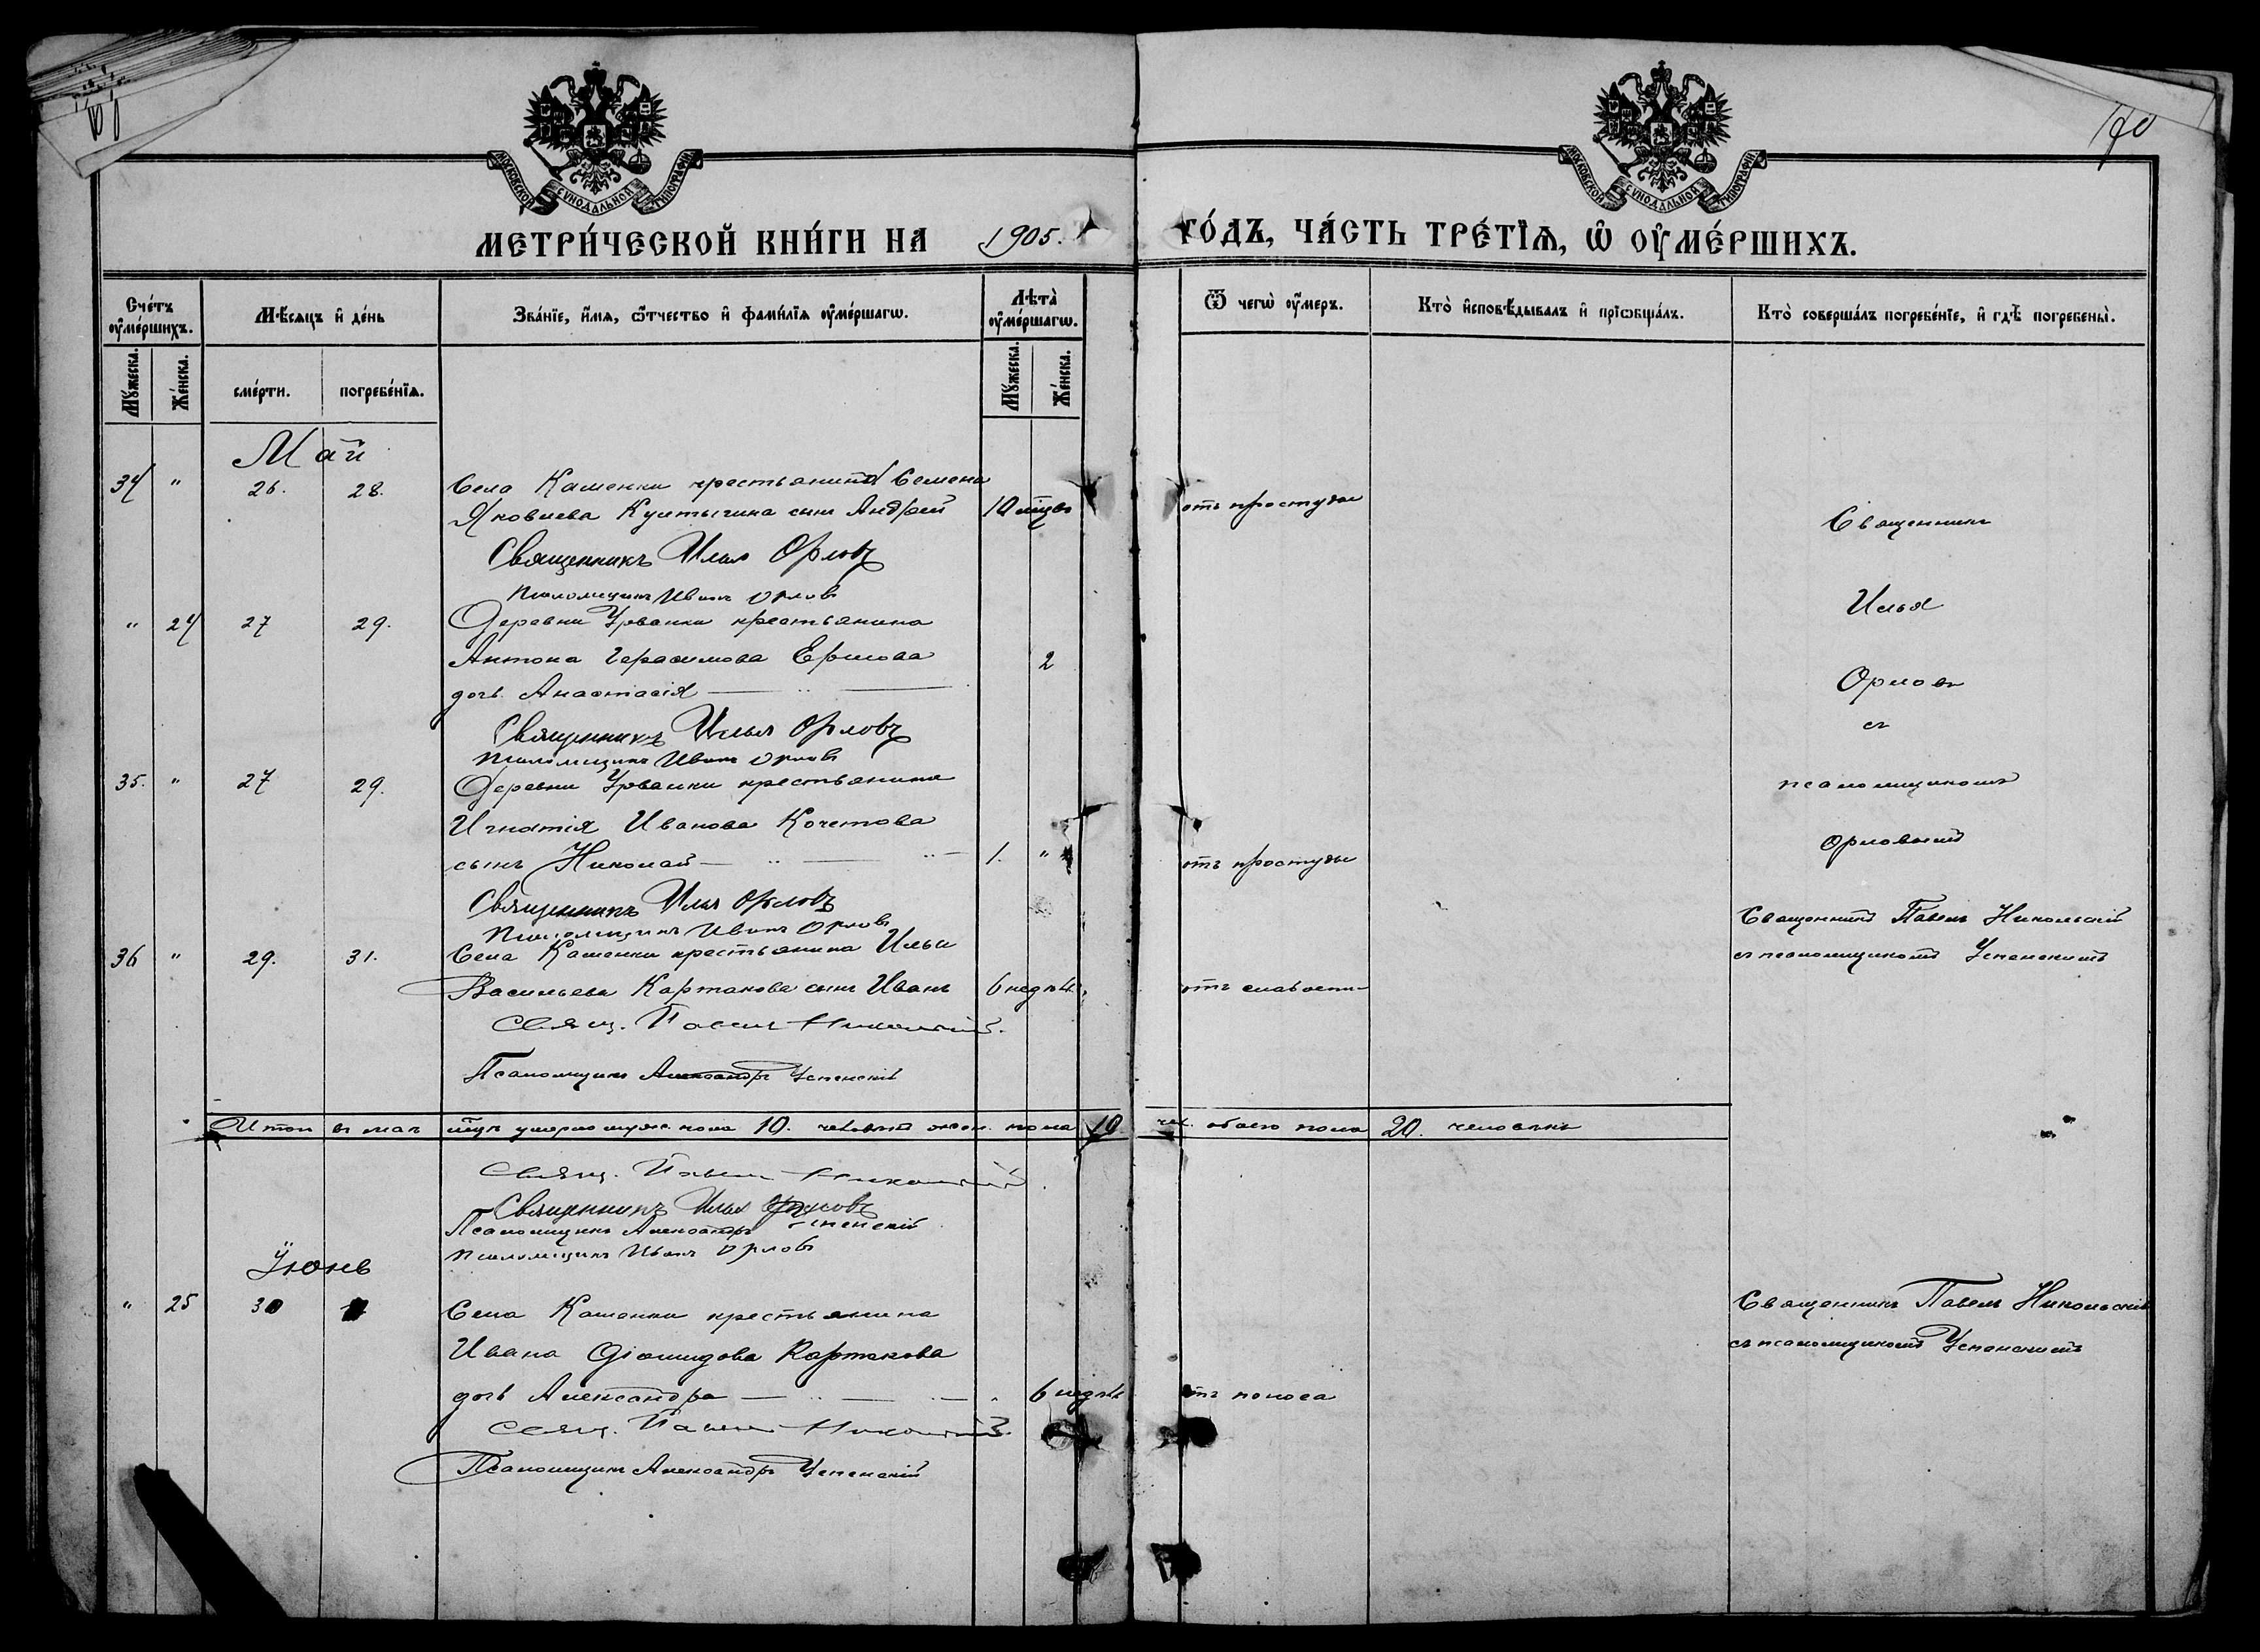 170
МОСКОВСКОЙ СѴНОДАЛЬНОЙ ТИПОГРАФІИ
МОСКОВСКОЙ СѴНОДАЛЬНОЙ ТИПОГРАФІИ
МЕТРИ́ЧЕСКОЙ КНИ́ГИ НА 1905. ГО́ДЪ, ЧА́СТЬ ТРЕ́ТЇѦ, Ѡ҆ ОУ҆МЕ́РШИХЪ.
Сче́тъ оу҆ме́ршихъ.
Мꙋ́жеска.
Же́нска.
Мѣ́сяцъ и҆ де́нь
сме́рти.
погребе́нїѧ.
Зва́нїе, и҆́мѧ, ѻ҆́тчество и҆ фами́лїѧ оу҆ме́ршагѡ.
Лѣта̀ оу҆ме́ршагѡ.
Мꙋ́жеска.
Же́нска.
Ѿ чегѡ̀ оу҆́меръ.
Кто̀ и҆сповѣ́дывалъ и҆ прїѡбща́лъ.
Кто̀ соверша́лъ погребе́нїе, и҆ гдѣ̀ погребены̀.
Май
34 " 26. 28. Села Каменки крестьянина Семена
Яковлева Культыгина сынъ Андрей 10 мѣцевъ отъ простуды
Священникъ Илья Орловъ
Псаломщикъ Иванъ Орловъ
" 24 27 29. Деревни Урванки крестьянина
Антона Герасимова Ершова 2
дочь Анастасія
Священникъ Илья Орловъ
Псаломщикъ Иванъ Орловъ
35. " 27 29. Деревни Урванки крестьянина
Игнатія Иванова Кочетова
сынъ Николай 1. " отъ простуды
Священникъ Илья Орловъ
Псаломщикъ Иванъ Орловъ
Священникъ
Илья
Орловъ
съ
псаломщикомъ
Орловымъ
36 " 29. 31. Села Каменки крестьянина Ильи
Васильева Картакова сынъ Иванъ 6 недѣль отъ слабости
Свящ. Павелъ Никольскій.
Псаломщикъ Александръ Успенскій
Священникъ Павелъ Никольскій
съ псаломщикомъ Успенскимъ
Итого въ маѣ мцѣ умерло мужс. пола 10. человѣкъ женс. пола 10 чел. обоего пола 20. человѣкъ
Свящ. Павелъ Никольскій.
Священникъ Илья Орловъ
Псаломщикъ Александръ Успенскій
Псаломщикъ Иванъ Орловъ
Іюнь
" 25 30 Села Каменки крестьянина
Ивана Діомидова Картакова
дочь Александра " 6 недѣль отъ поноса
Свящ. Павелъ Никольскій.
Псаломщикъ Александръ Успенскій
Священникъ Павелъ Никольскій
съ псаломщикомъ Успенскимъ